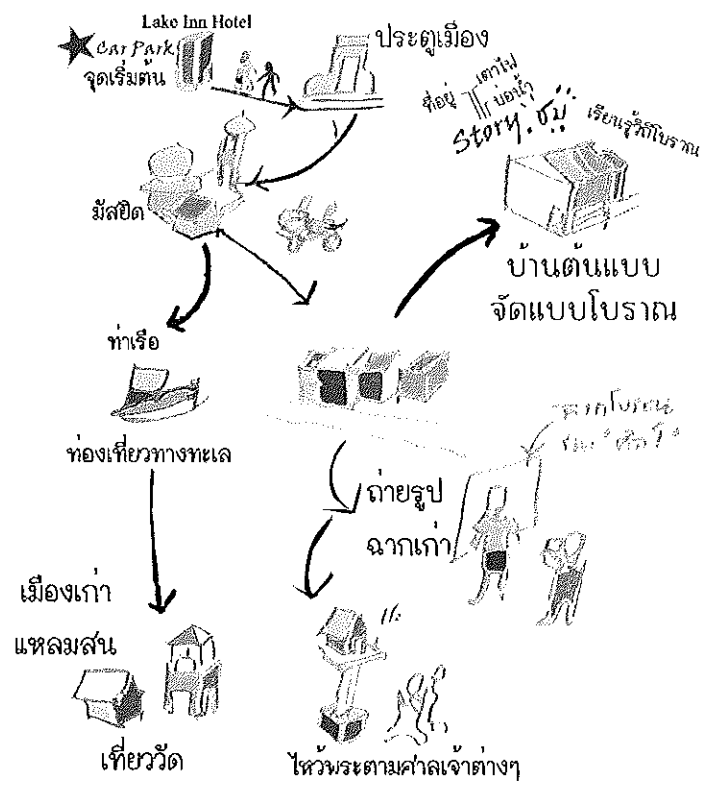 Lake Inn Hotel
Car Park
จุดเริ่มต้น
ประตูเมือง
ที่อยู่
เตาไฟ
บ่อน้ำ
Story
เรียนรู้วิถีโบราณ
มัสยิด
บ้านต้นแบบ
จัดแบบโบราณ
ท่าเรือ
ท่องเที่ยวทางทะเล
ถ่ายรูป
ฉากเก่า
เมืองเก่า
แหลมสน
เที่ยววัด
ไหว้พระตามศาลเจ้าต่างๆ